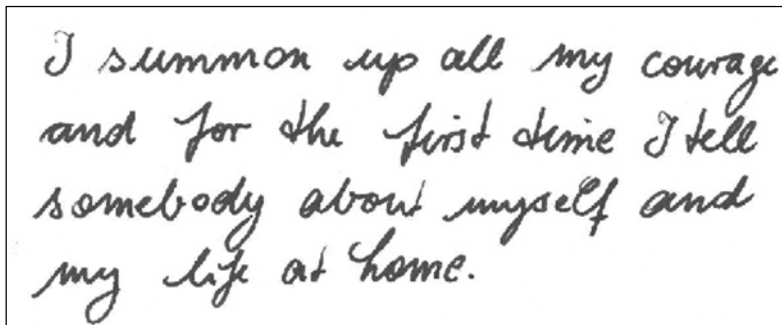 I summon up all my courage
and for the first time I tell
somebody about myself and
my life at home.